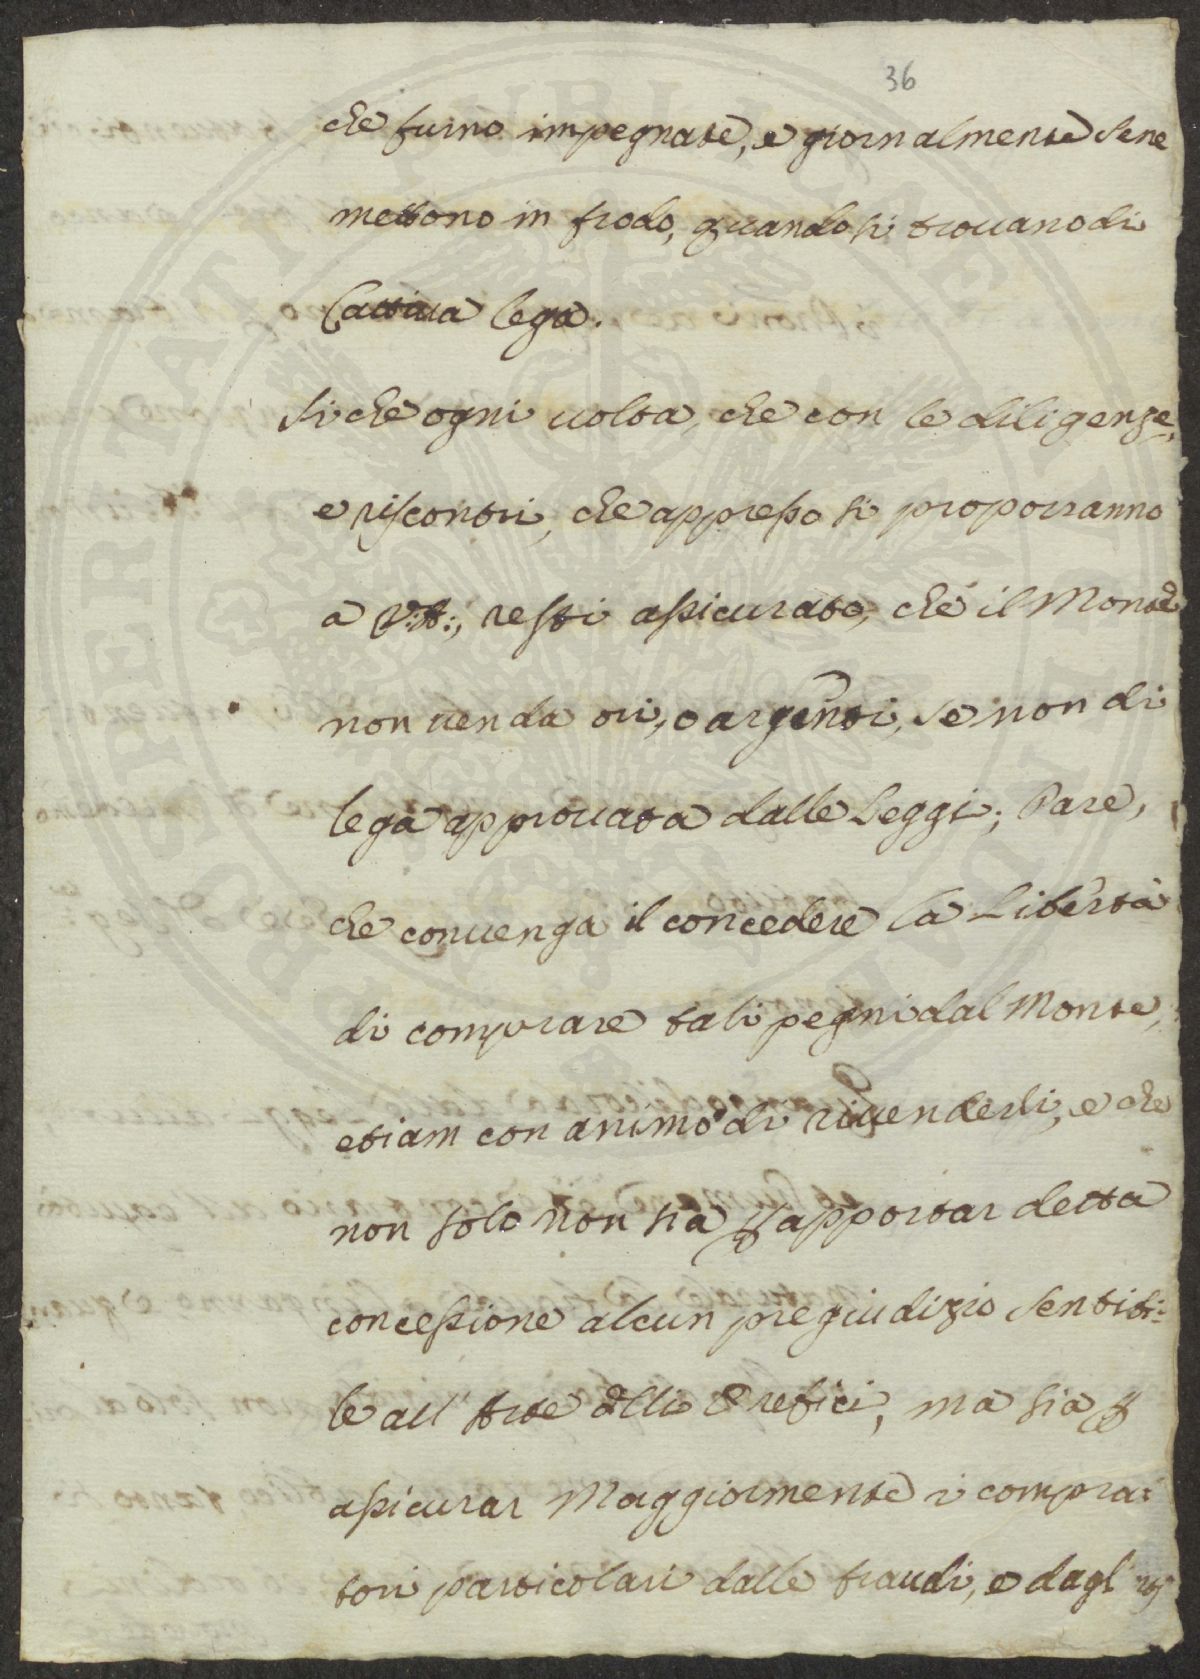 36
che furno impegnate, e giornalmente sene
mettono in frodo, quando si trovano di
Cattiva lega.
Si che ogni volta, che con le diligenze,
e riscontri, che appresso si proporranno
a V: A:, resti assicurato, che il Monte
non venda ori, o argenti, se non di
lega approvata dalle Leggi; Pare,
che convenga il concedere la Libertà
di comprare tali pegni dal Monte,
etiam con animo di rivenderli, e che
non solo non sia p apportar detta
concessione alcun pregiudizio sensibi=
le all' Arte d'lli Orefici, ma sia p
assicurar Maggiormente i compra=
tori particolari dalle fraudi, e dagl'